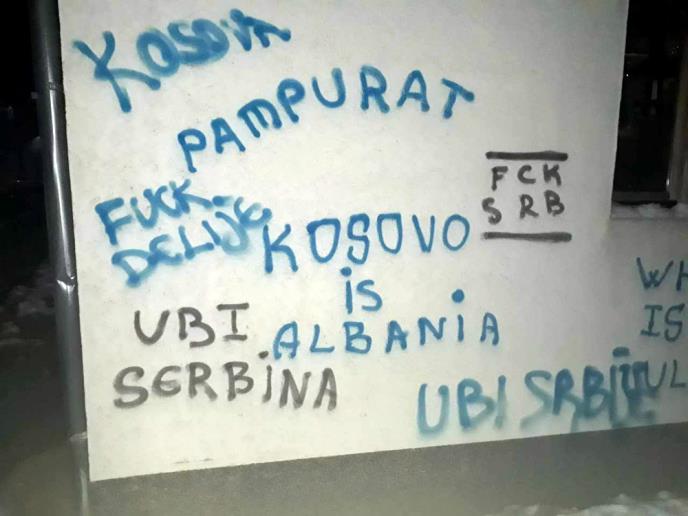 KOSOVA
PAMPURAT
FUCK
DELIJE
FCK
SRB
KOSOVO
is
ALBANiA
UBI
SERBiNA
UBI SRBiJE
WH
IS
UL